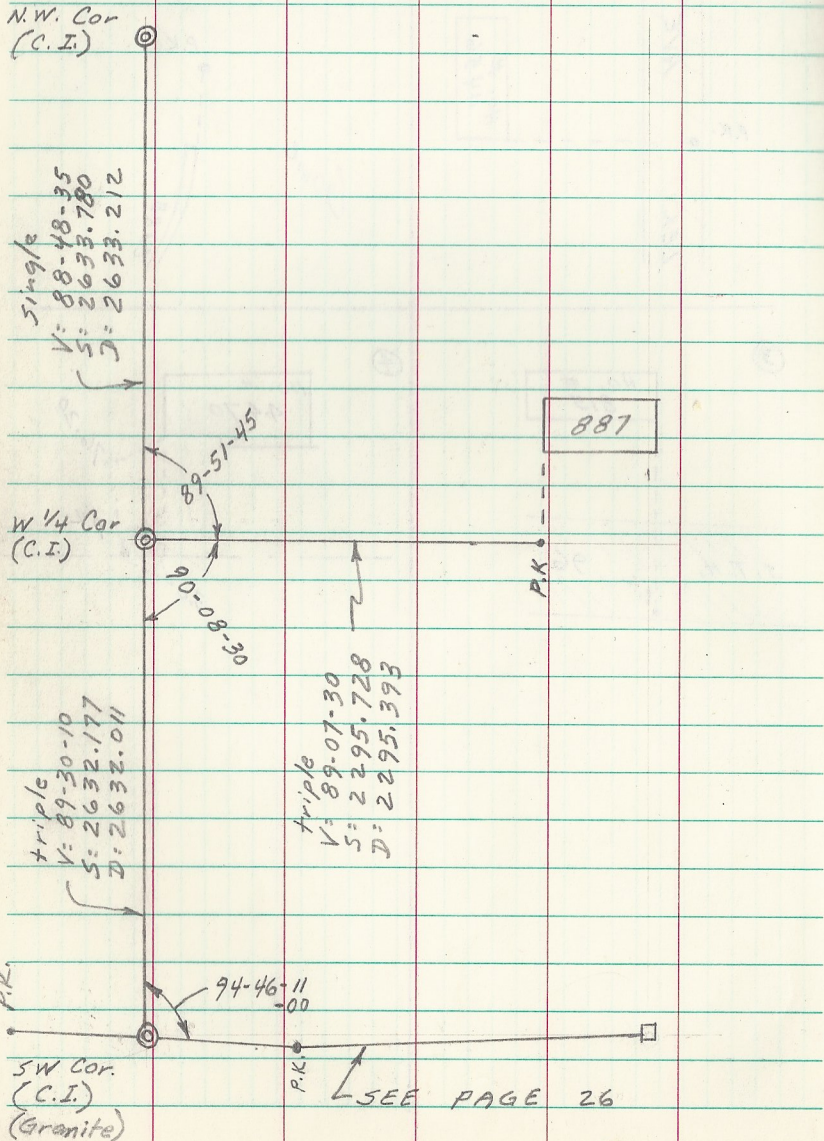 N.W. Cor
(C.I.)
single
V= 88-48-35
S= 2633.780
D= 2633.212
89-51-45
887
W 1/4 Cor
(C.I.)
90-08-30
P.K
triple
V= 89-07-30
S= 2295.728
D= 2295.393
triple
V= 89-30-10
S= 2632.177
D= 2632.011
P.K.
94-46-11
-00
P.K.
SW Cor.
(C.I.)
(Granite)
SEE PAGE 26